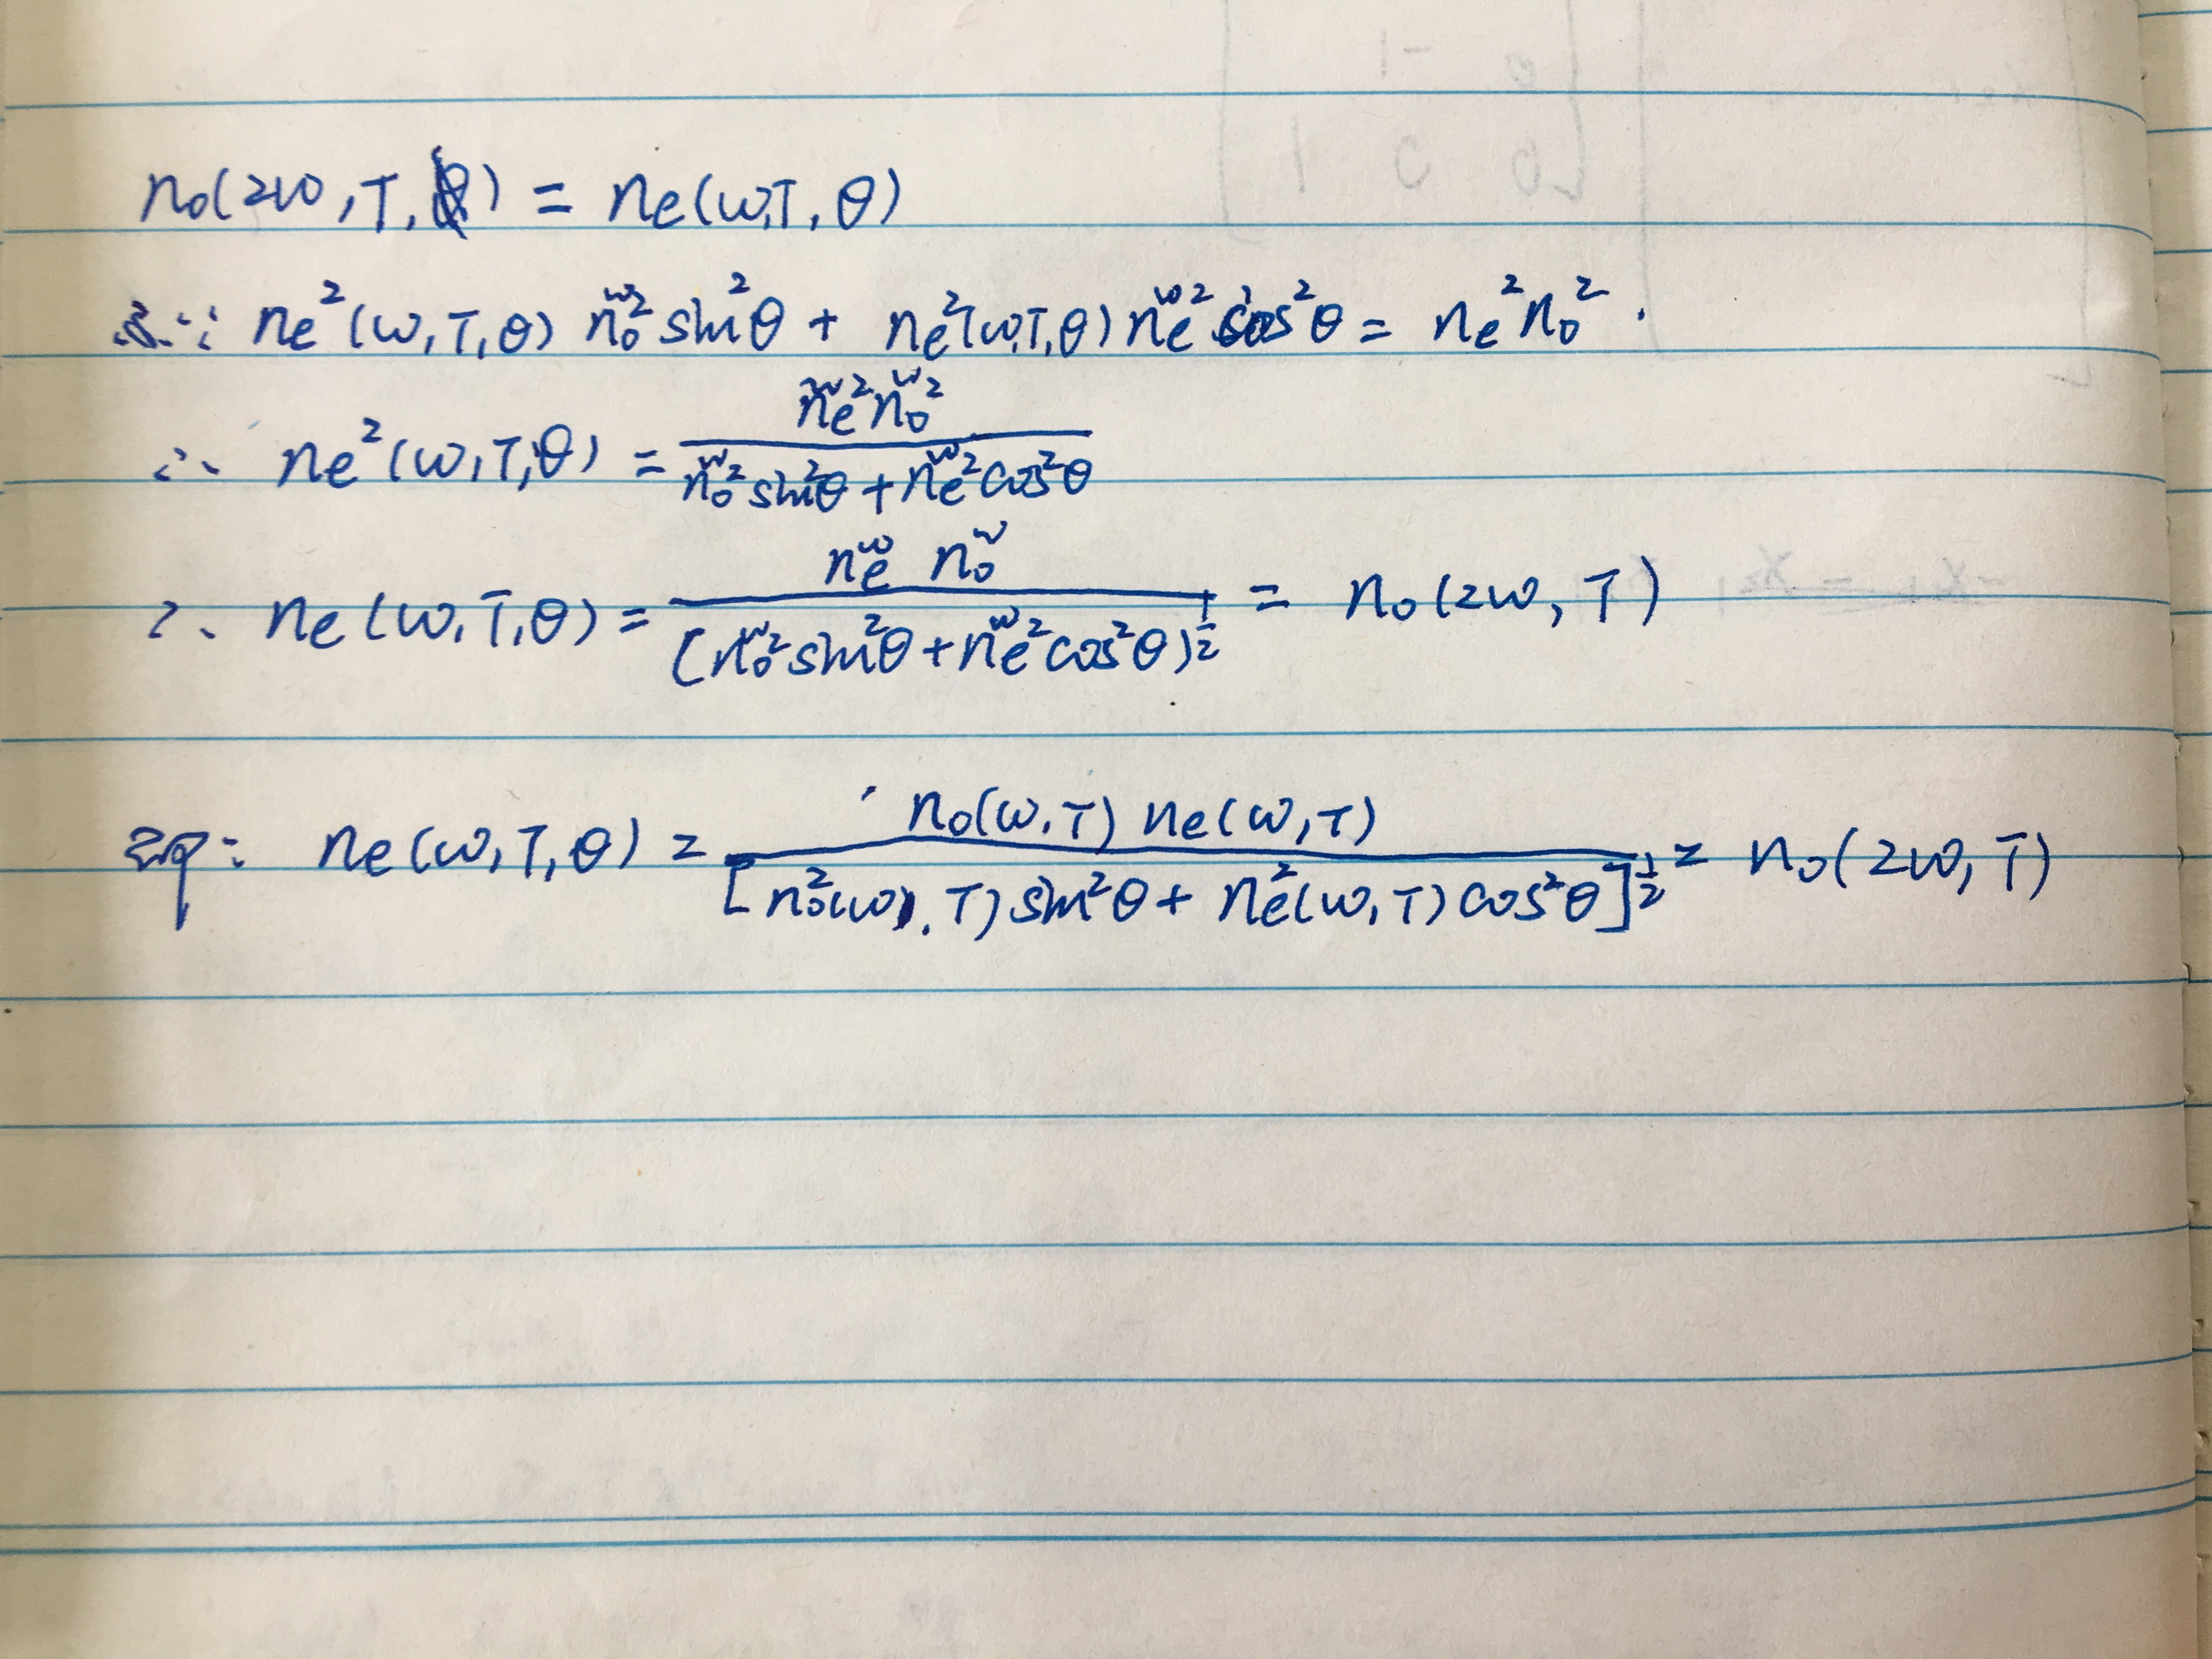 n₀(2ω,T) = nₑ(ω,T,θ)
∵ nₑ²(ω,T,θ) n₀^ω² sin²θ + nₑ²(ω,T,θ) nₑ^ω² cos²θ = nₑ² n₀².
∴ nₑ²(ω,T,θ) = nₑ^ω² n₀^ω² / n₀^ω² sin²θ + nₑ^ω² cos²θ
∴ nₑ(ω,T,θ) = nₑ^ω n₀^ω / (n₀^ω² sin²θ + nₑ^ω² cos²θ)^½ = n₀(2ω,T)
即: nₑ(ω,T,θ) = n₀(ω,T) nₑ(ω,T) / [n₀²(ω,T) sin²θ + nₑ²(ω,T) cos²θ]^½ = n₀(2ω,T)